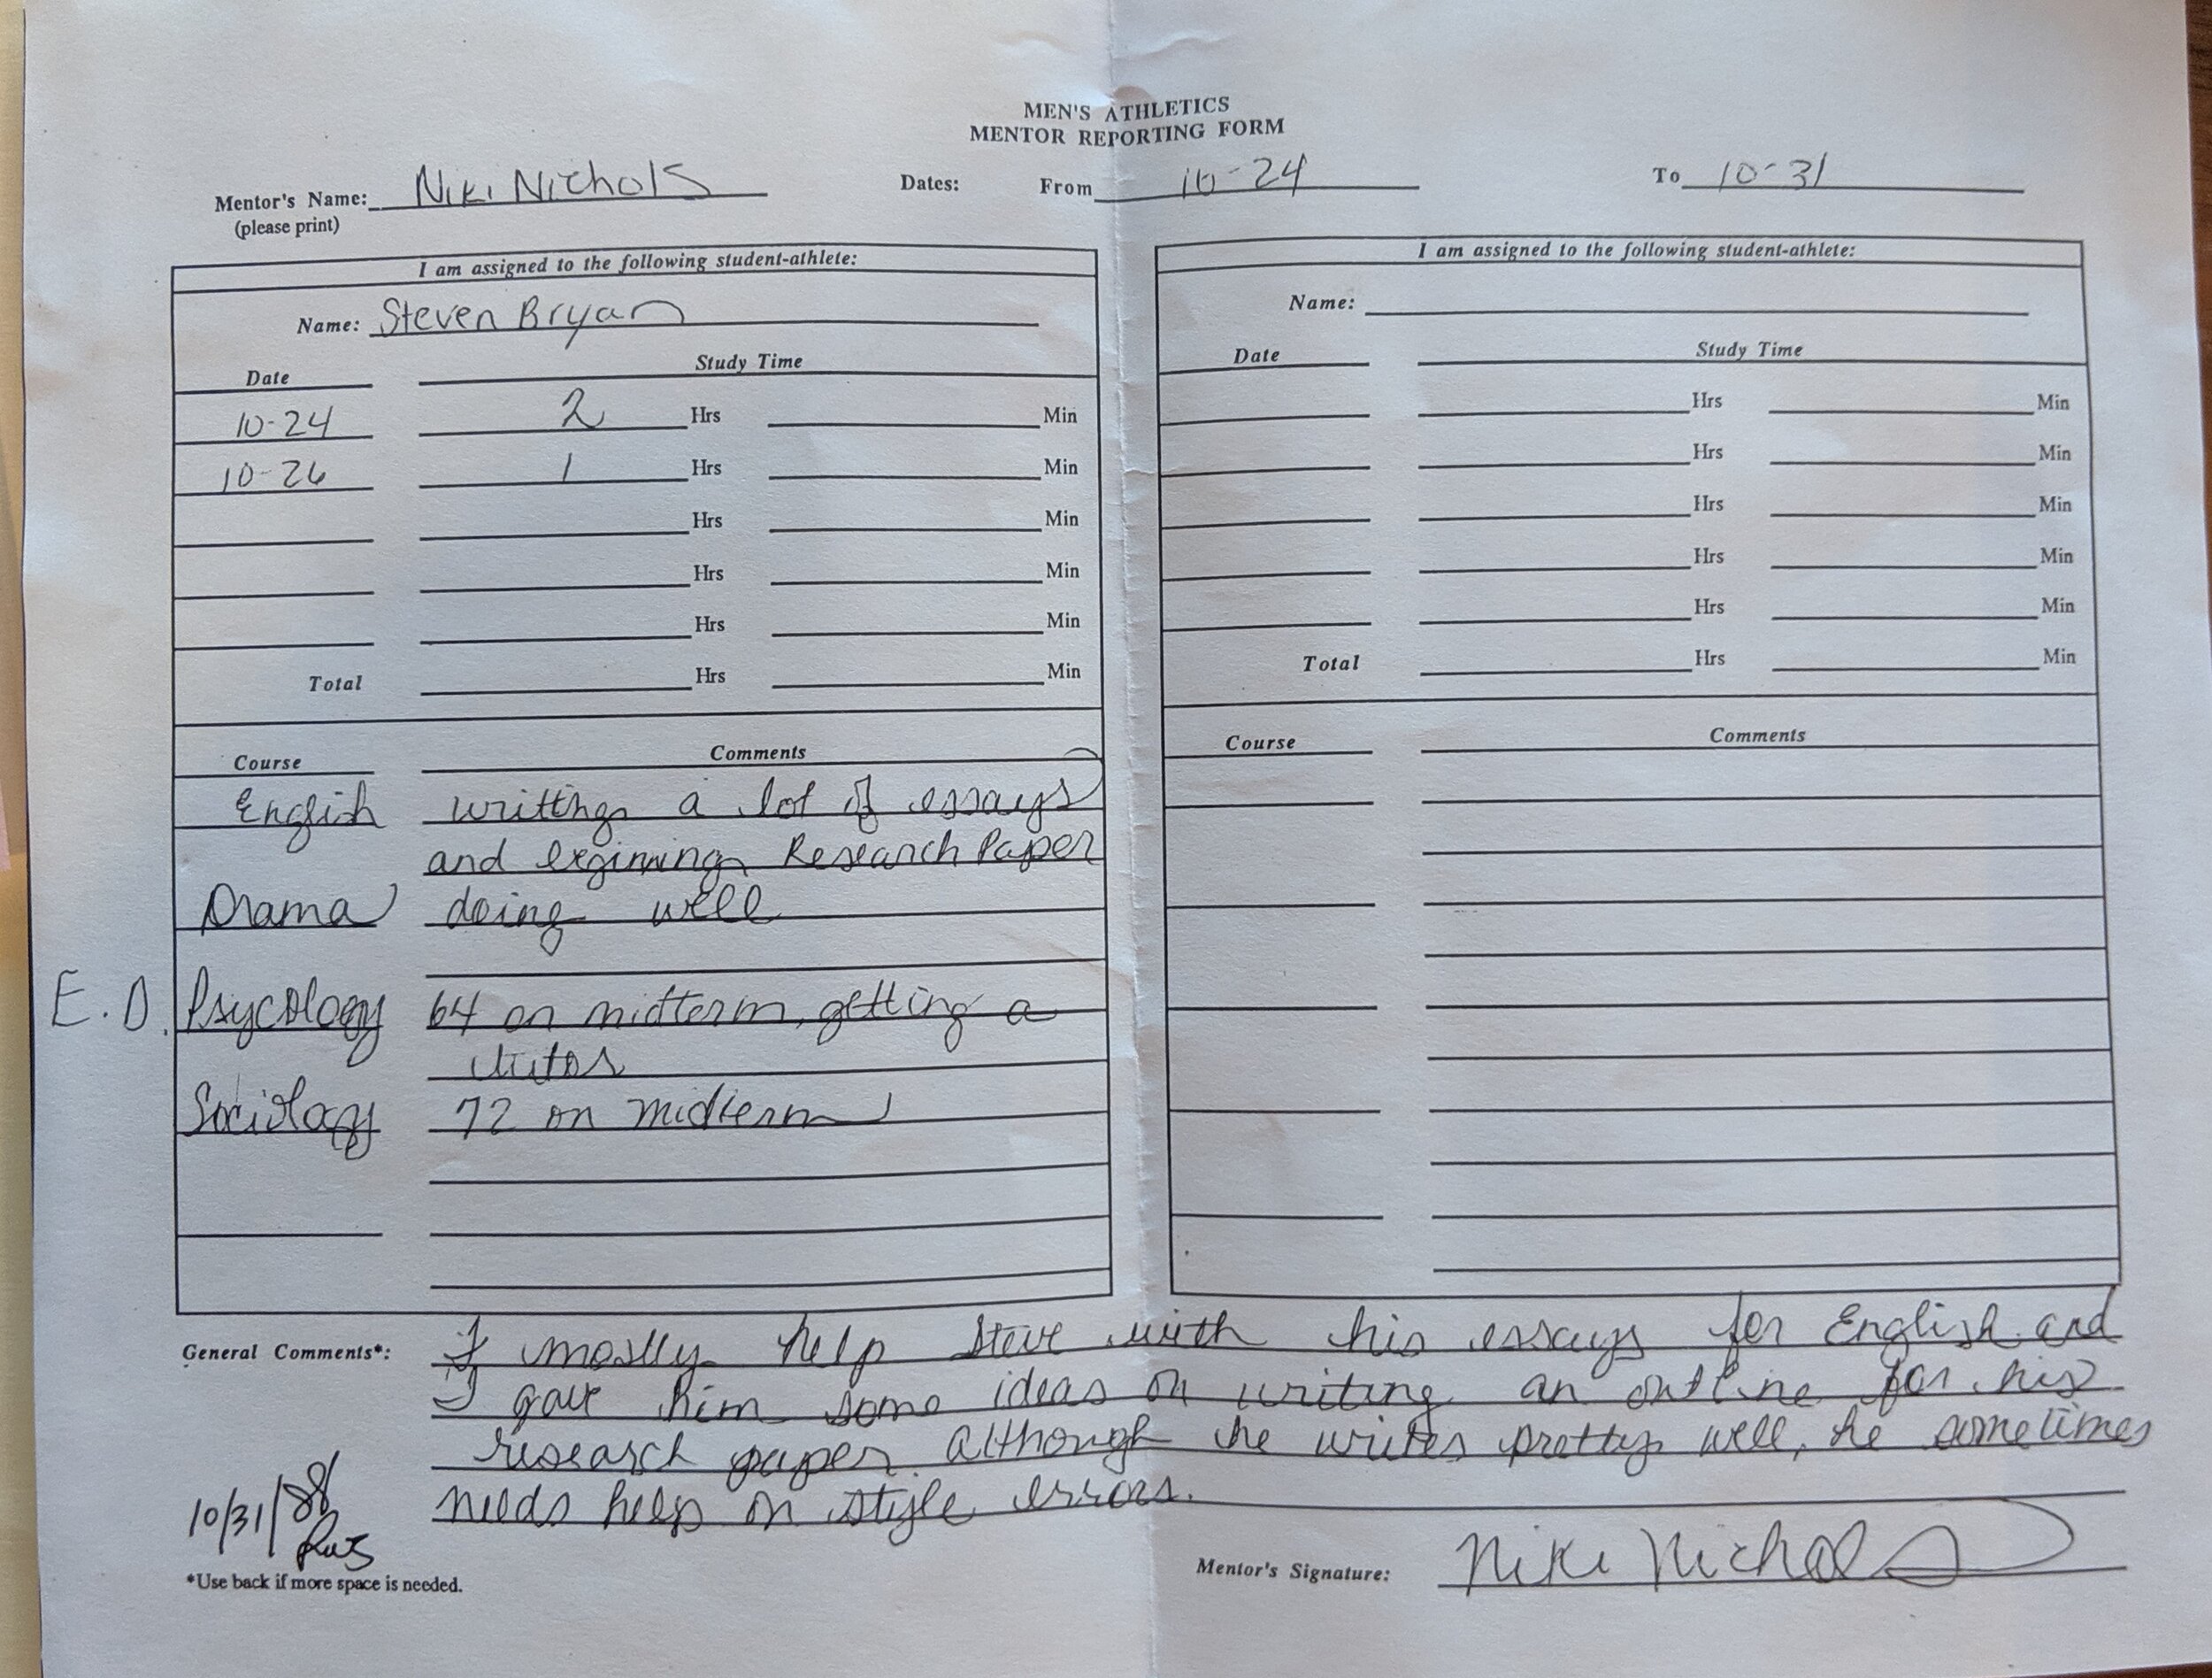 MEN'S ATHLETICS
MENTOR REPORTING FORM
Mentor's Name: Niki Nichols Dates: From 10-24 To 10-31
(please print)
I am assigned to the following student-athlete:
Name: Steven Bryan
Date Study Time
10-24 2 Hrs Min
10-26 1 Hrs Min
Hrs Min
Hrs Min
Hrs Min
Total Hrs Min
Course Comments
English writting a lot of essays
and Research Paper
Drama doing well
E.D. Psycology 64 on midterm, getting a
tutor
Sociology 72 on midterm
I am assigned to the following student-athlete:
Name:
Date Study Time
Hrs Min
Hrs Min
Hrs Min
Hrs Min
Hrs Min
Total Hrs Min
Course Comments
General Comments*: I mostly help Steve with his essays for English and
I gave him some ideas on writing an outline for his
research paper. Although he writes pretty well, he sometimes
needs help on style errors.
10/31/88
*Use back if more space is needed.
Mentor's Signature: Niki Nichols